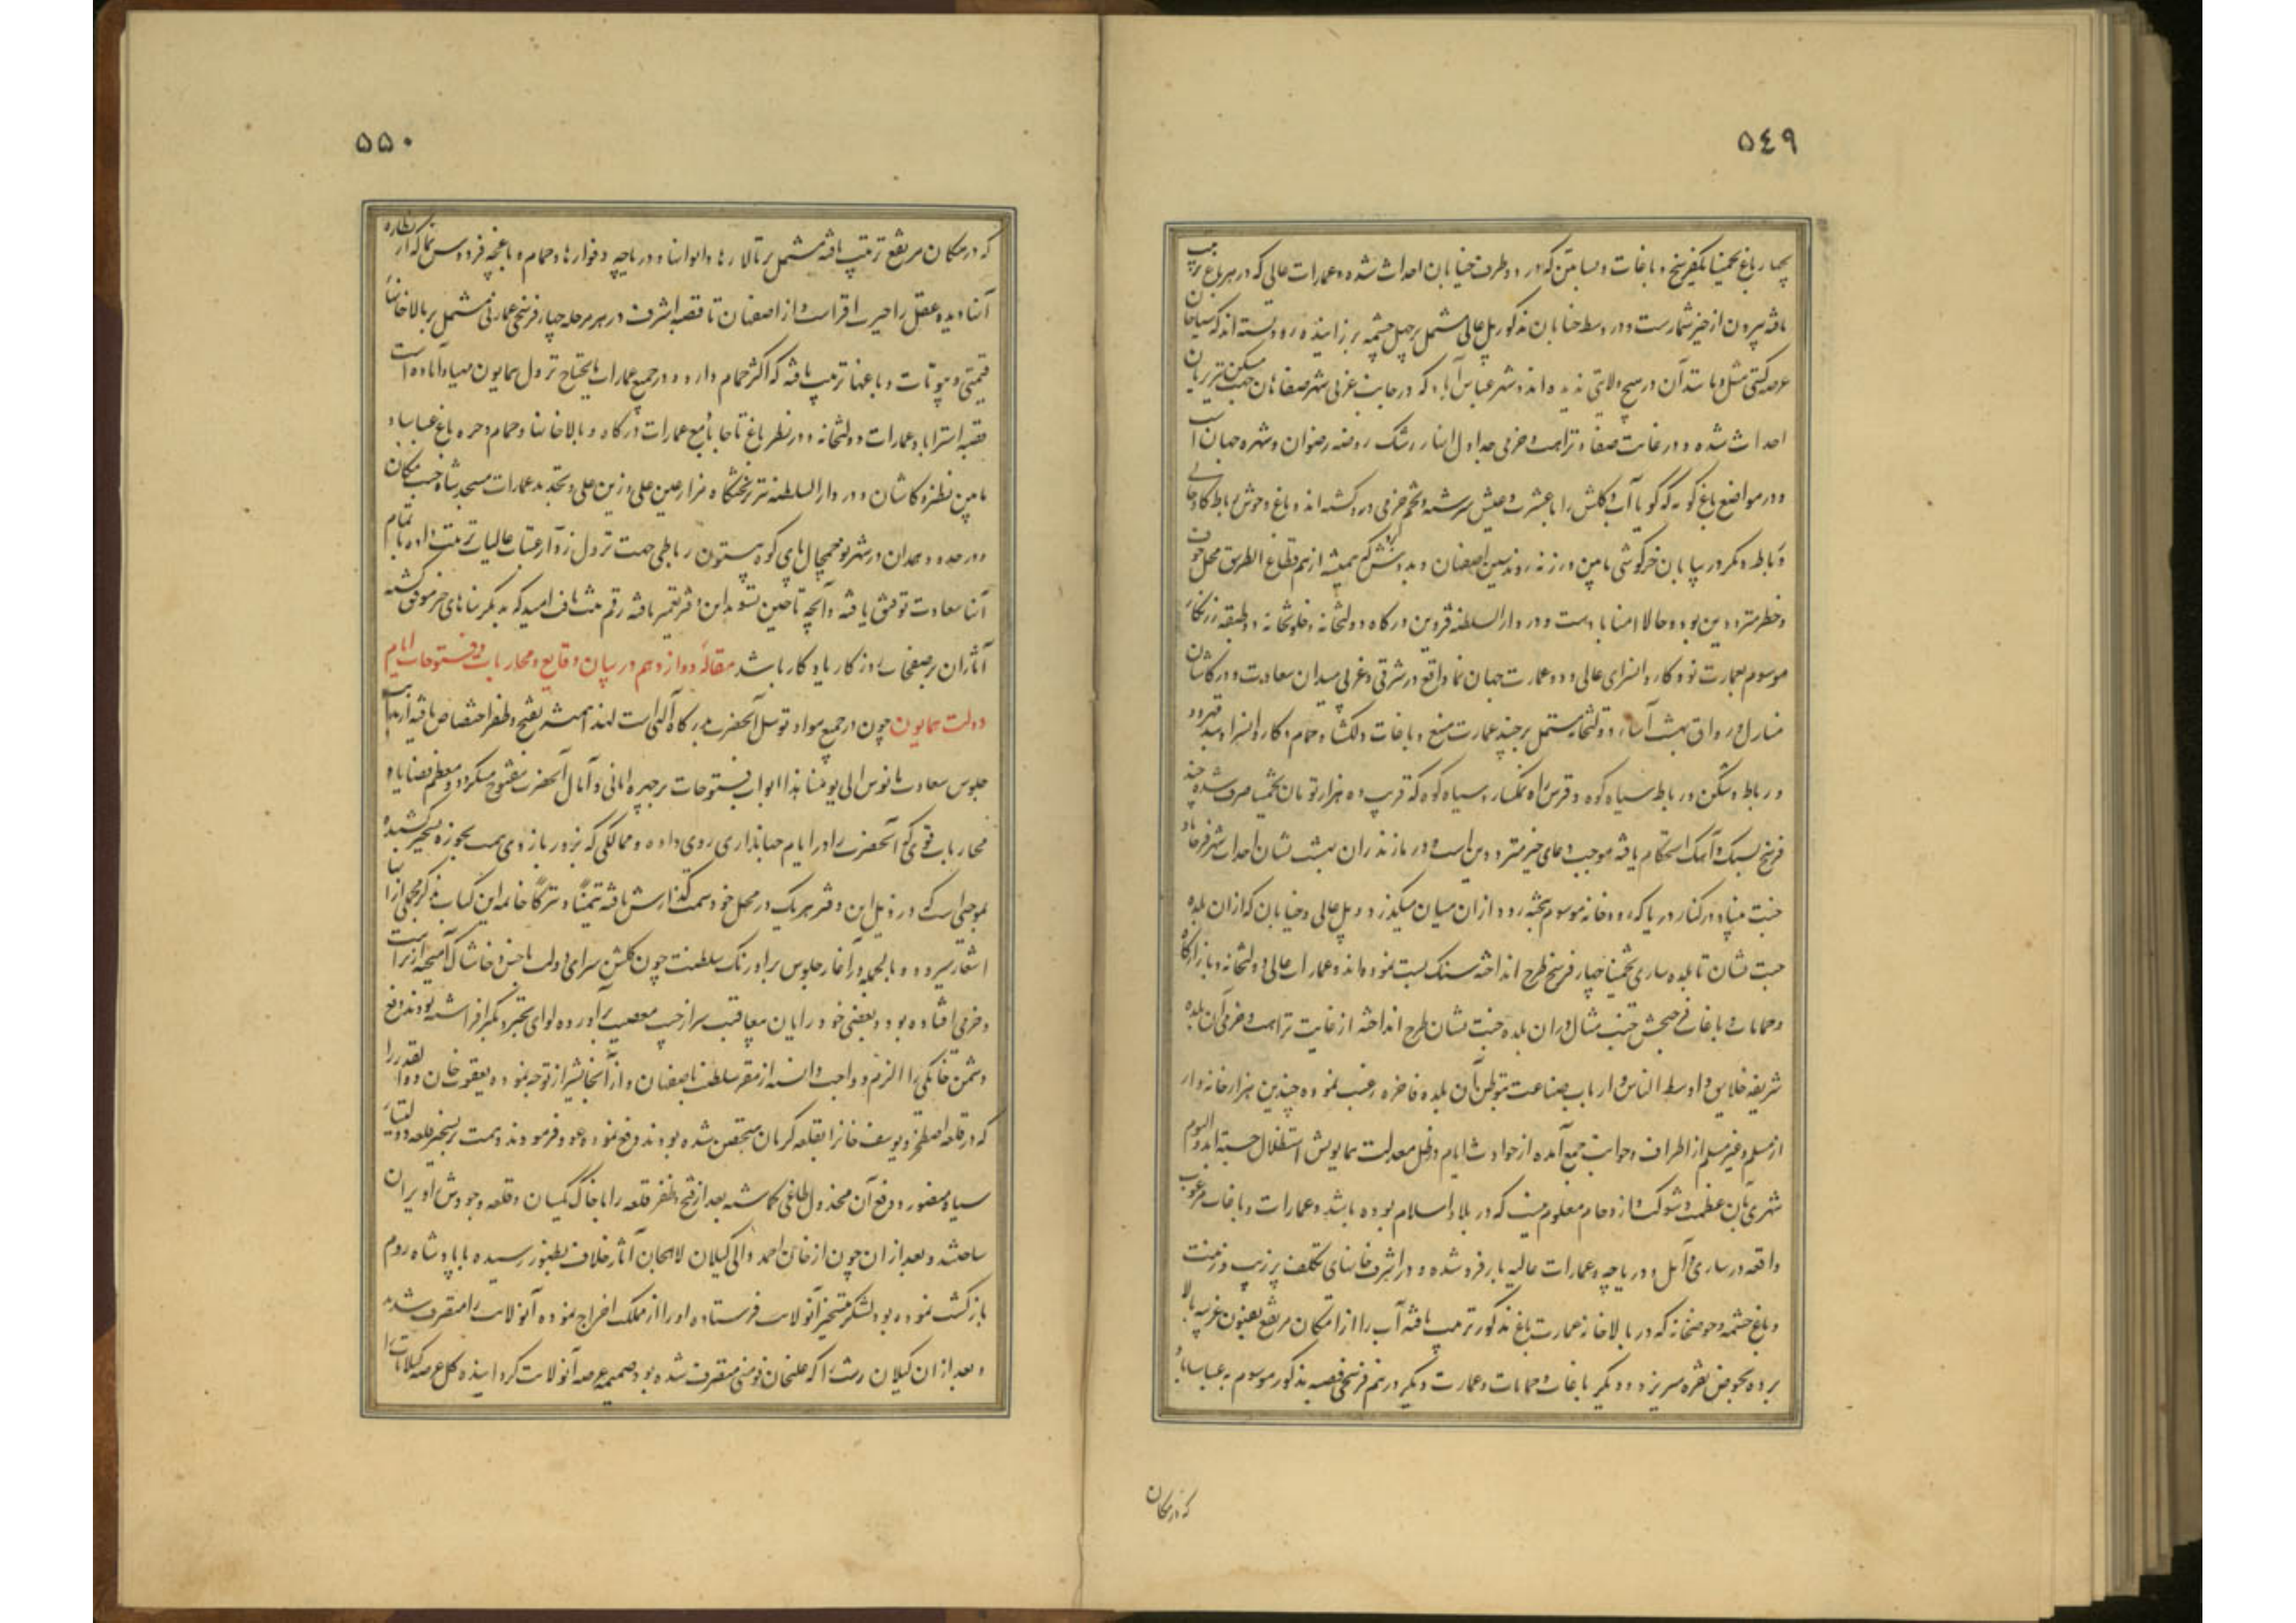 ۵٤۹
چهار باغ تخمیناً یکفرسخ و باغات و بساتین که در دو طرف خیابان احداث شده و عمارات عالی که در هر باغ ترتیب
یافته بیرون از حیز شمارست و در وسط خیابان مذکور پل عالی مشتمل بر چهل چشمه بر زاینده رود بسته اند که سیاحان
عرصه گیتی مثل و مانند آن در هیچ ولایتی ندیده اند و شهر عباس آباد که در جانب غربی شهر صفاهان جهت مسکن تبریزیان
احداث شده و در غایت صفا و نزاهت و خرمی جداول انهار رشک روضه رضوان و شهره جهان است
و در مواضع باغ که گویا آب و گلش را با عشرت و عیش سرشته و تخم خرمی در و کشته اند و باغ وحوش رباط کاو خانی
و رباط دیگر در بیابان خرگوشی مابین ورزنه رودشتین اصفهان و ندوشن که همیشه از هم قطاع الطریق محل خوف
و خطر مترددین بود و حالا امناباد است و در دار السلطنه قزوین درگاه دولتخانه و خلوتخانه دو طبقه زرنگار
موسوم بعمارت نو و کاروانسرای عالی و دو عمارت جهان نما واقع در شرقی و غربی میدان سعادت و در کاشان
منازل و رواق بهشت آسا و دولتخانه مشتمل بر چند عمارت منیع و باغات دلکشا و حمام و کاروانسرا و بند قهرود
و رباط و سنگن و رباط سیاه کوه و فرش راه نمکسار و سیاه کوه که قریب ده هزار تومان تخمیناً صرف شده چند
فرسخ بسنگ و آهک استحکام یافته موجب دعای خیر مترددین است و در مازندران بهشت نشان احداث شهر فرحاباد
جنت بنیاد در کنار دریا که رودخانه موسوم بتجنه رود از ان میان میگذرد و پل عالی و خیابان که از ان بلده
جنت نشان تا بلده ساری تخمیناً چهار فرسخ طرح انداخته سنگ بست نموده اند و عمارات عالی و دولتخانه و بازارگاه
و حمامات و باغات فرحبخش جنت مثال در ان بلده جنت نشان طرح انداخته از غایت نزاهت و خرمی آن بلده
شریفه خلایق و اوسط الناس و ارباب صناعت بتوطن آن بلده فاخره رغبت نموده چندین هزار خانه وار
از مسلم و غیر مسلم از اطراف و جوانب جمع آمده از حوادث ایام در ظل معدلت همایونش استظلال جسته اند و الیوم
شهری بآن عظمت و شوکت و ازدحام معلوم نیست که در بلاد اسلام بوده باشد و عمارات و باغات مرغوب
واقعه در ساری و آمل و دریاچه و عمارات عالیه بارفروشده و در اشرف خانهای تکلف پر زیب و زینت
و باغ چشمه و حوضخانه که در بالاخانه عمارت باغ مذکور ترتیب یافته آب را از امکان مرتفع بفنون غریبه بالا
برده بحوض نقره میریزد و دیگر باغات و حمامات و عمارت دیگر در نیم فرسخی قصبه مذکور موسوم به عباساباد
که در مکان
۵۵۰
که در مکان مرتفع ترتیب یافته مشتمل بر تالارها و ایوانها و دریاچه و فوارها و حمام و باغچه فردوس نما که از نظاره
آنها دیده عقل را حیرت افزاست و از اصفهان تا قصبه اشرف در هر مرحله چهار فرسخی عمارتی مشتمل بر بالاخانها
قیمتی و بیوتات و باغها ترتیب یافته که اکثر حمام دارد و در جمیع عمارات مایحتاج نزول همایون مهیا و آماده است
قصبه استراباد عمارات و دولتخانه و در نظر باغ تاجاباد مع عمارات درگاه و بالاخانها و حمام و حره باغ عباساباد
مابین نطنز و کاشان و در دار السلطنه تبریز تختگاه مزار عین علی و زین علی و تجدید عمارات مسجد شاه جنت مکان
و در حدود همدان در شهر نو یمچال پای کوه بیستون رباطی جهت نزول زوار عتبات عالیات ترتیب داده باتمام
آنها سعادت توفیق یافته و آنچه تا حین تسوید این دفتر تعمیر یافته رقم ثبت یافت امید که بدیگر بناهای خیر موفق گشته
آثار آن بر صفحات روزگار یادگار باشد مقاله دوازدهم در بیان وقایع و محاربات و فتوحات ایام
دولت همایون چون در جمیع مواد توسل آنحضرت بدرگاه الهی است لهذا همیشه بفتح و ظفر اختصاص یافته از ابتدا
جلوس سعادت مانوس الی یومنا هذا ابواب فتوحات بر چهره امانی و آمال آنحضرت مفتوح میگردد و معظم قضایا و
محاربات قوی که آنحضرت را در ایام جهانداری روی داده و ممالکی که بزور بازوی همت بحوزه تسخیر کشیده
بموجبی است که در ذیل این دفتر هر یک در محل خود سمت گذارش یافته تیمناً و تبرکاً خامه این کتاب بذکر مجملی از آنها
اشعار میرود و بالجمله در آغاز جلوس بر اورنگ سلطنت چون گلشن سرای دولت باخس و خاشاک آمیخته از تراست
و خرمی افتاده بود و بعضی خود رایان معاقب سر از جیب معصیت برآورده لوای تجبر و تکبر افراشته بودند دفع
دشمن خانگی را الزم و واجب دانسته از مقر سلطنت باصفهان و از آنجا بشیراز توجه نموده یعقوب خان ذوالقدر را
که در قلعه اصطخر و یوسف خانرا بقلعه کرمان متحصن شده بودند دفع نموده عود فرمودند و همت بر تسخیر قلعه و ولتیار
سیاه منصور و دفع آن مخذول طاغی گماشته بعد از فتح و ظفر قلعه را با خاک یکسان و قلعه وجودش را ویران
ساختند و بعد از ان چون از خان احمد والی گیلان لاهجان آثار خلاف بظهور رسیده با پادشاه روم
بازگشت نموده بود لشکر بتسخیر آنولایت فرستاده او را از ملک اخراج نموده آنولایت را متصرف شدند
و بعد از ان گیلان رشت را که علیخان فومنی متصرف شده بود ضمیمه عرصه آنولایت گردانیده کل عرصه گیلانات را